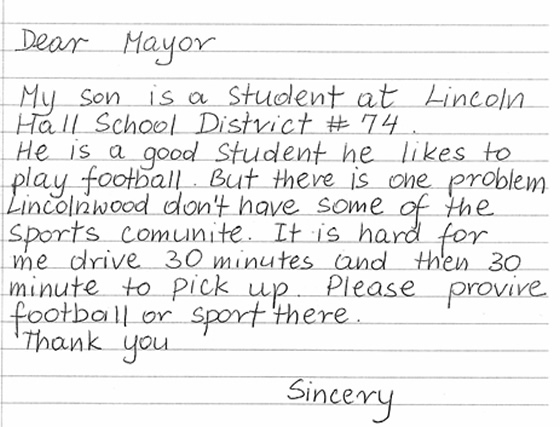 Dear Mayor
My son is a student at Lincoln
Hall School District # 74.
He is a good student he likes to
play football. But there is one problem
Lincolnwood don't have some of the
sports comunite. It is hard for
me drive 30 minutes and then 30
minute to pick up. Please provire
football or sport there.
Thank you
Sincery